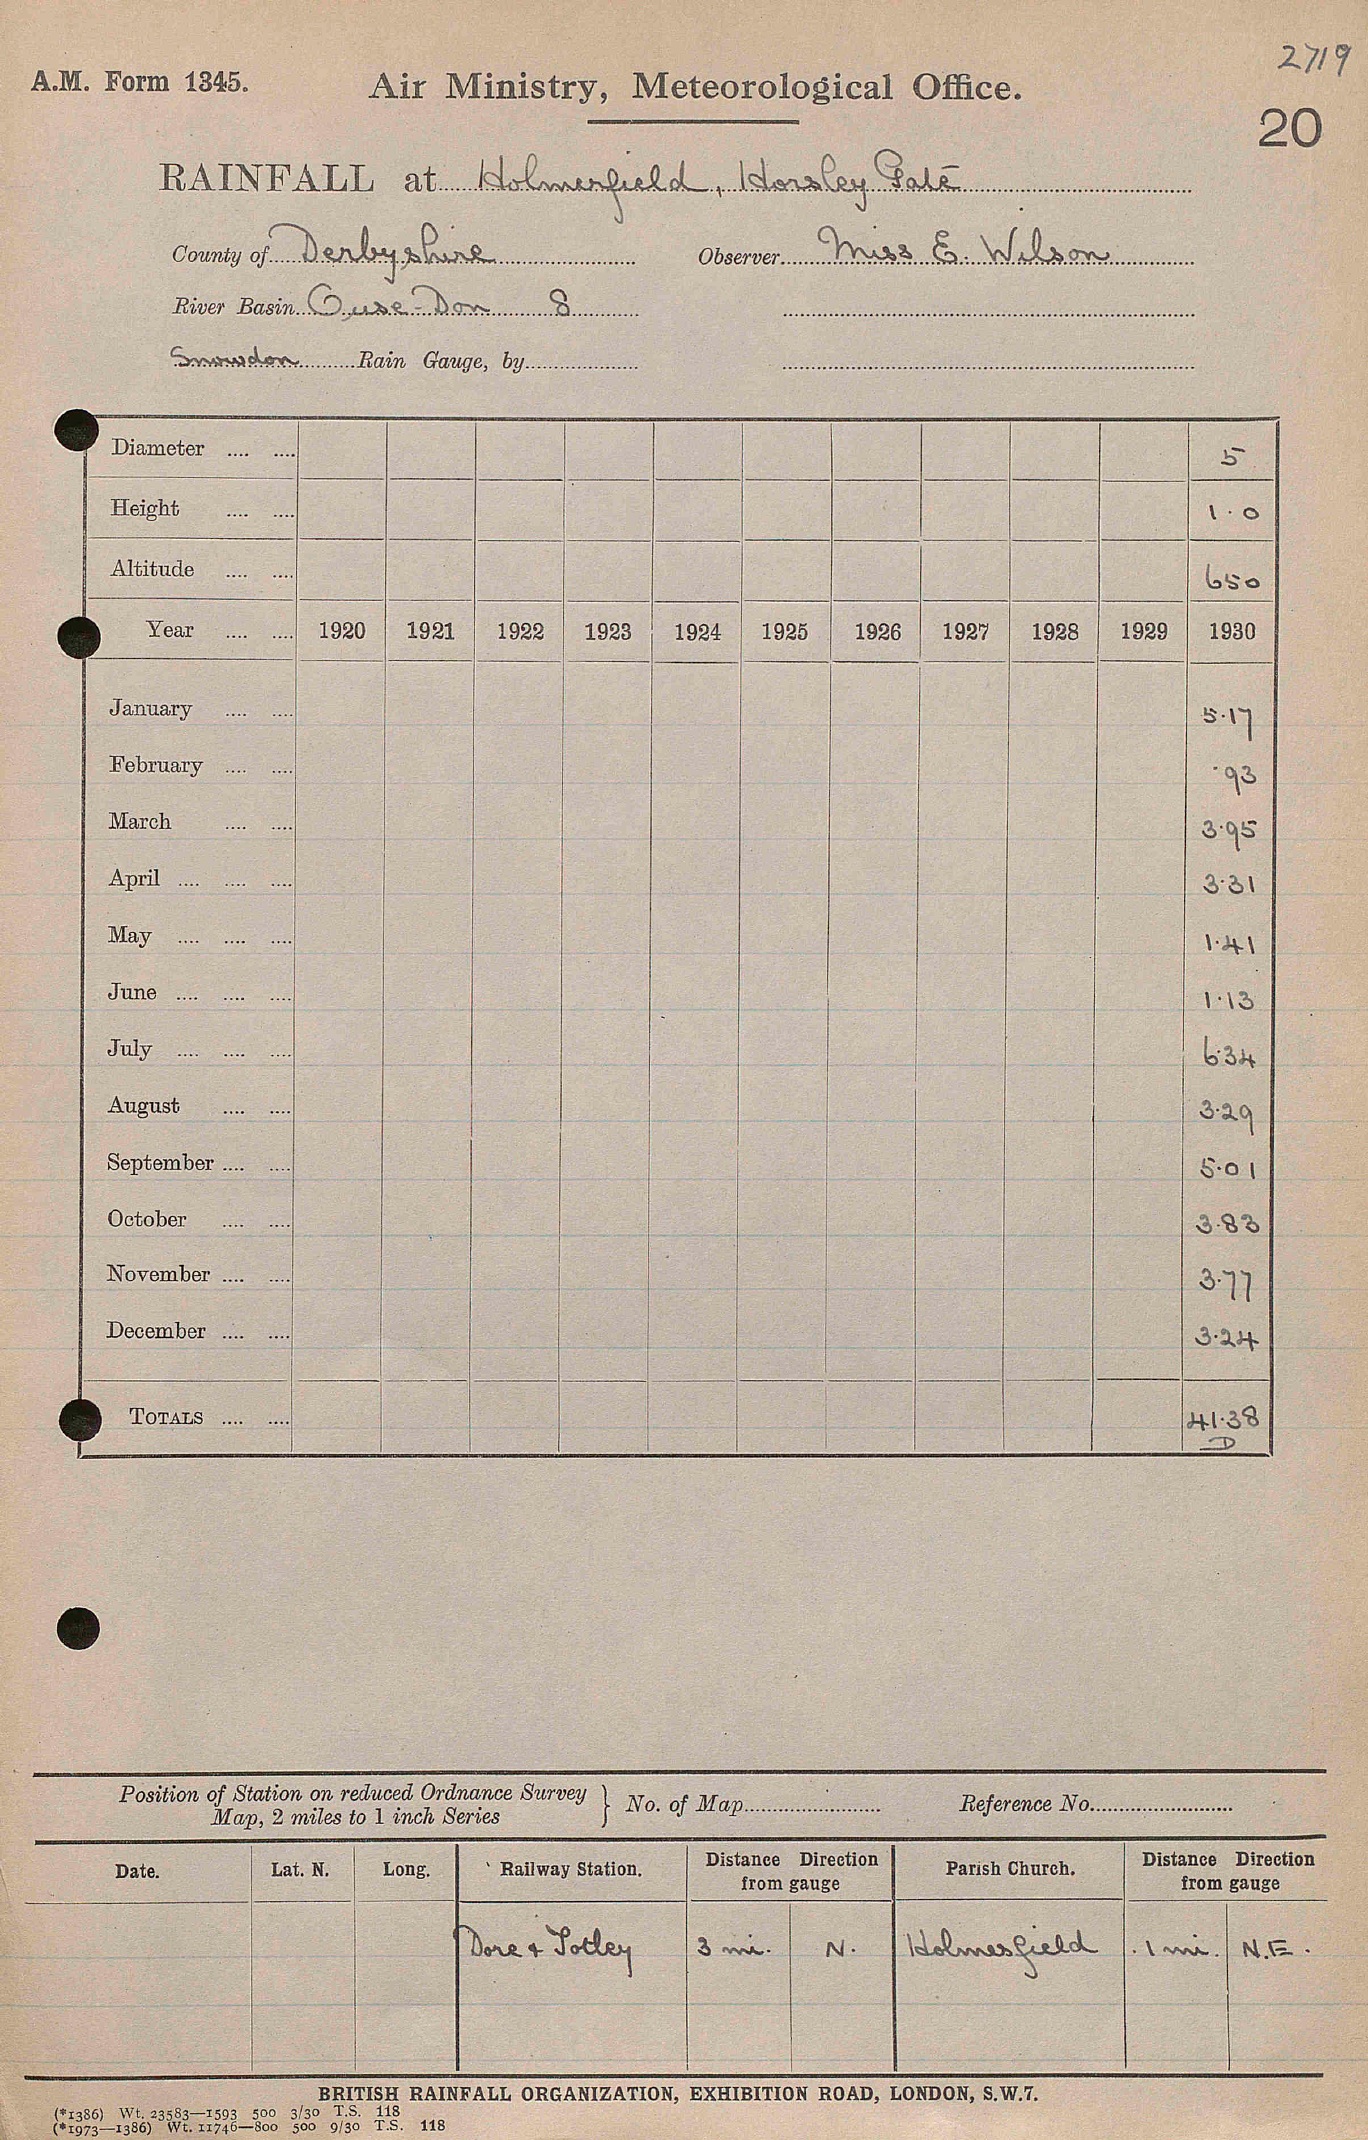 2719
A.M. Form 1345. Air Ministry, Meteorological Office.
20
RAINFALL at Holmesfield, Horsley Gate
County of Derbyshire Observer Miss E. Wilson
River Basin Ouse-Don 8
Snowdon Rain Gauge, by
Diameter .... .... 5
Height .... .... 1.0
Altitude .... .... 650
Year .... .... 1920 1921 1922 1923 1924 1925 1926 1927 1928 1929 1930
January .... .... 5.17
February .... .... .93
March .... .... 3.95
April .... .... .... 3.31
May .... .... .... 1.41
June .... .... .... 1.13
July .... .... .... 6.34
August .... .... 3.29
September .... .... 5.01
October .... .... 3.83
November .... .... 3.77
December .... .... 3.24
TOTALS .... .... 41.38
D
Position of Station on reduced Ordnance Survey
Map, 2 miles to 1 inch Series } No. of Map Reference No.
Date. Lat. N. Long. Railway Station. Distance Direction from gauge Parish Church. Distance Direction from gauge
Dore & Totley 3 mi. N. Holmesfield 1 mi. N.E.
BRITISH RAINFALL ORGANIZATION, EXHIBITION ROAD, LONDON, S.W.7.
(*1386) Wt. 23583—1593 500 3/30 T.S. 118
(*1973—1386) Wt. 11746—800 500 9/30 T.S. 118